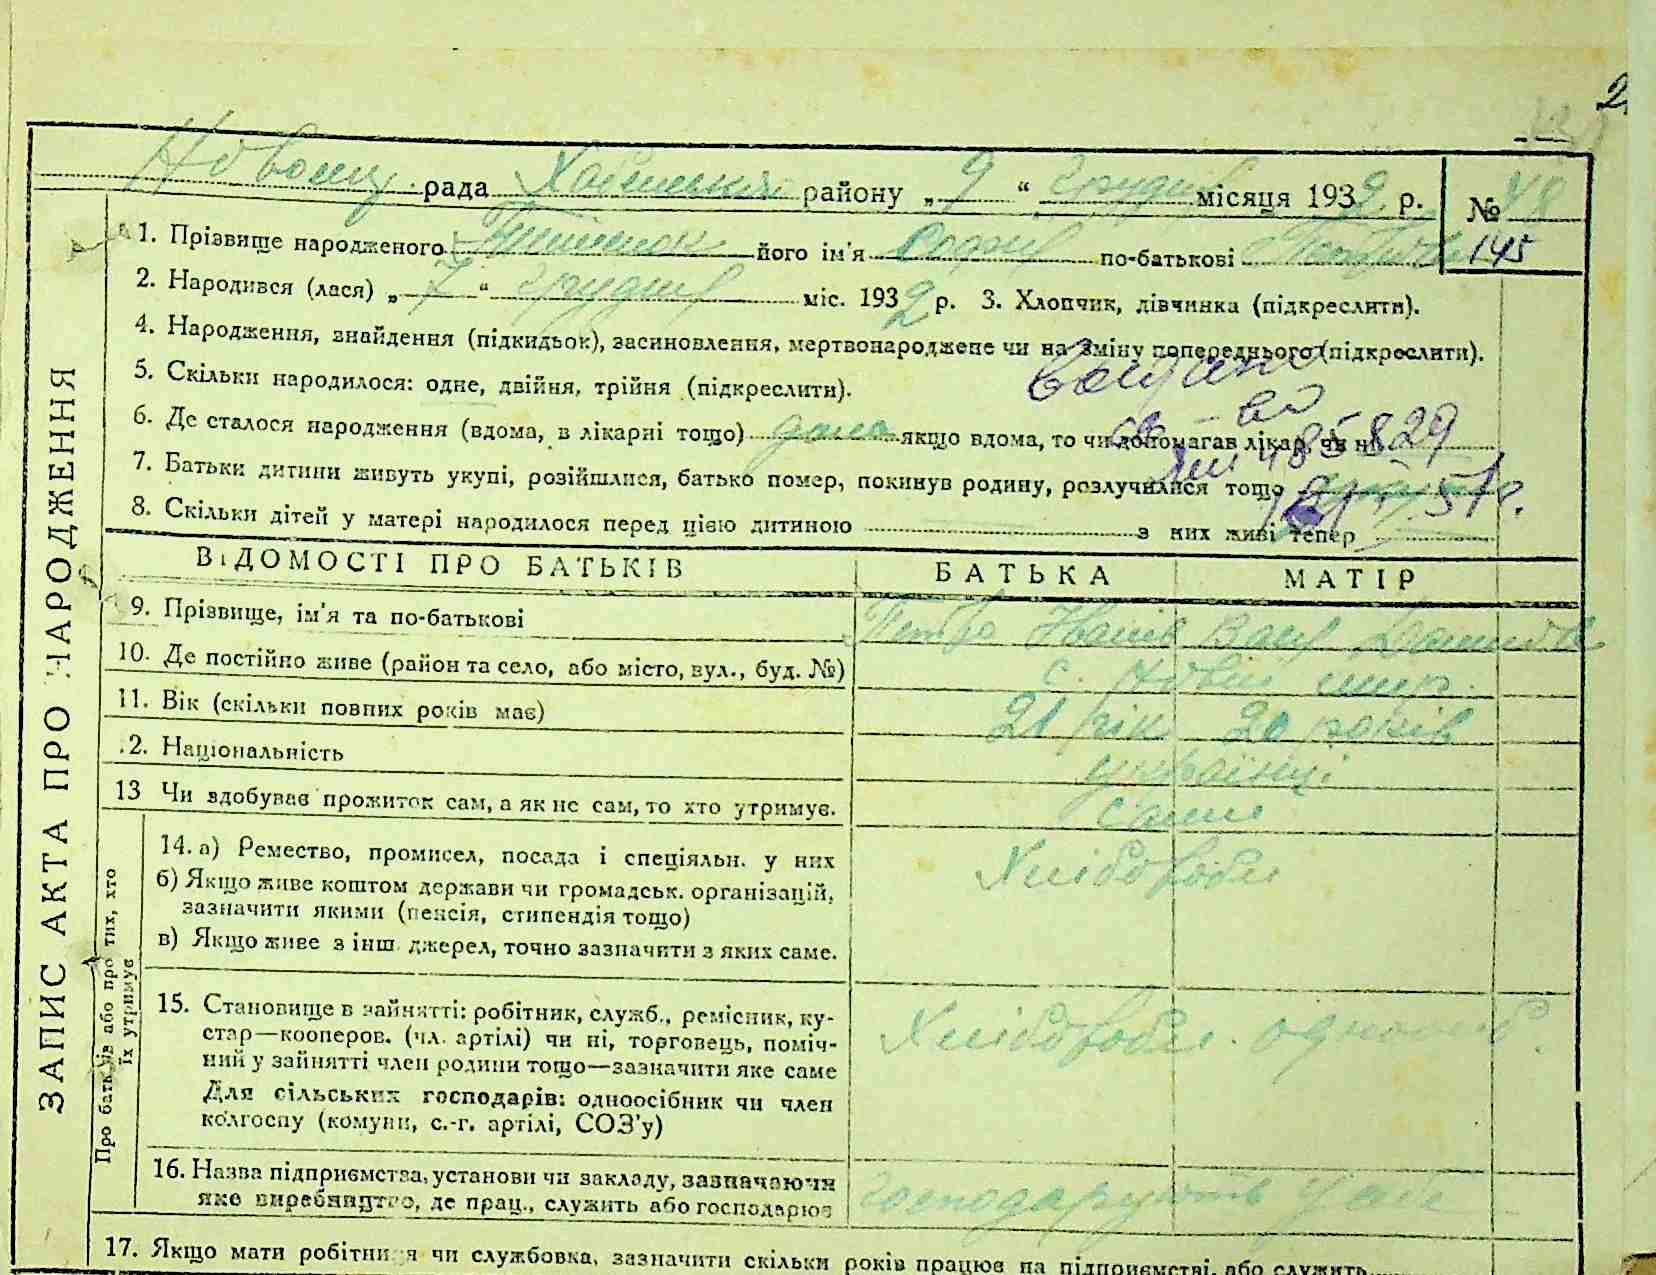 2
рада Хабенська району „ 9 “ Грудня місяця 1932 р. № 48
1. Прізвище народженого його ім'я Софія по-батькові Петрівна 145
2. Народився (лася) „ 7 “ грудня міс. 1932 р. 3. Хлопчик, дівчинка (підкреслити).
4. Народження, знайдення (підкидьок), засиновлення, мертвонароджене чи на зміну попереднього (підкреслити).
5. Скільки народилося: одне, двійня, трійня (підкреслити).
6. Де сталося народження (вдома, в лікарні тощо) дома якщо вдома, то чи допомагав лікар, чи ні
7. Батьки дитини живуть укупі, розійшлися, батько помер, покинув родину, розлучилися тощо
8. Скільки дітей у матері народилося перед цією дитиною з них живі тепер
Видано
св-во
485829
51 р.
ЗАПИС АКТА ПРО НАРОДЖЕННЯ
ВІДОМОСТІ ПРО БАТЬКІВ БАТЬКА МАТІР
9. Прізвище, ім'я та по-батькові Петро
10. Де постійно живе (район та село, або місто, вул., буд. №) с. Новий мир.
11. Вік (скільки повних років має) 21 рік 20 років
12. Національність українці
13 Чи здобуває прожиток сам, а як не сам, то хто утримує. сами
Про батьків або про тих, хто
їх утримує
14. а) Ремество, промисел, посада і спеціяльн. у них Хлібороби
б) Якщо живе коштом держави чи громадськ. організацій,
зазначити якими (пенсія, стипендія тощо)
в) Якщо живе з інш. джерел, точно зазначити з яких саме.
15. Становище в зайнятті: робітник, служб., ремісник, ку-
стар—кооперов. (чл. артілі) чи ні, торговець, поміч-
ний у зайнятті член родини тощо—зазначити яке саме
Для сільських господарів: одноосібник чи член
колгоспу (комуни, с.-г. артілі, СОЗ'у)
Хлібороби. одноосіб.
16. Назва підприємства, установи чи закладу, зазначаючи
яке виробництво, де прац., служить або господарює
господарують у себе
17. Якщо мати робітниця чи службовка, зазначити скільки років працює на підприємстві, або служить